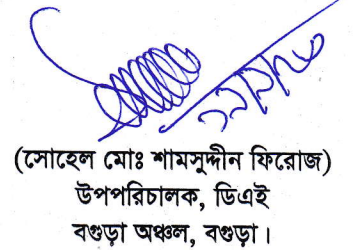 (সোহেল মোঃ শামসুদ্দীন ফিরোজ)
উপপরিচালক, ডিএই
বগুড়া অঞ্চল, বগুড়া।